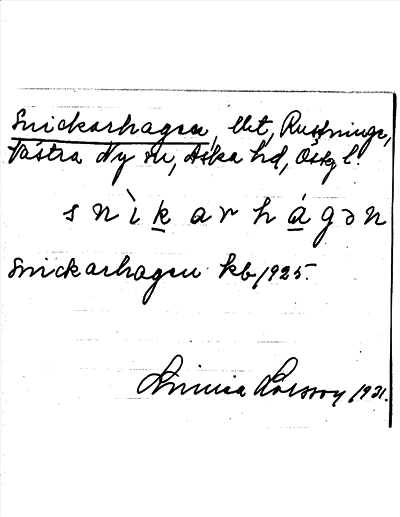 Snickarhagen, llt,
Västra Ny sn, Aska hd, Östg l.
s n ì k a r h á g ə n
Snickarhagen kb 1925.
Linnea Larsson 1931.